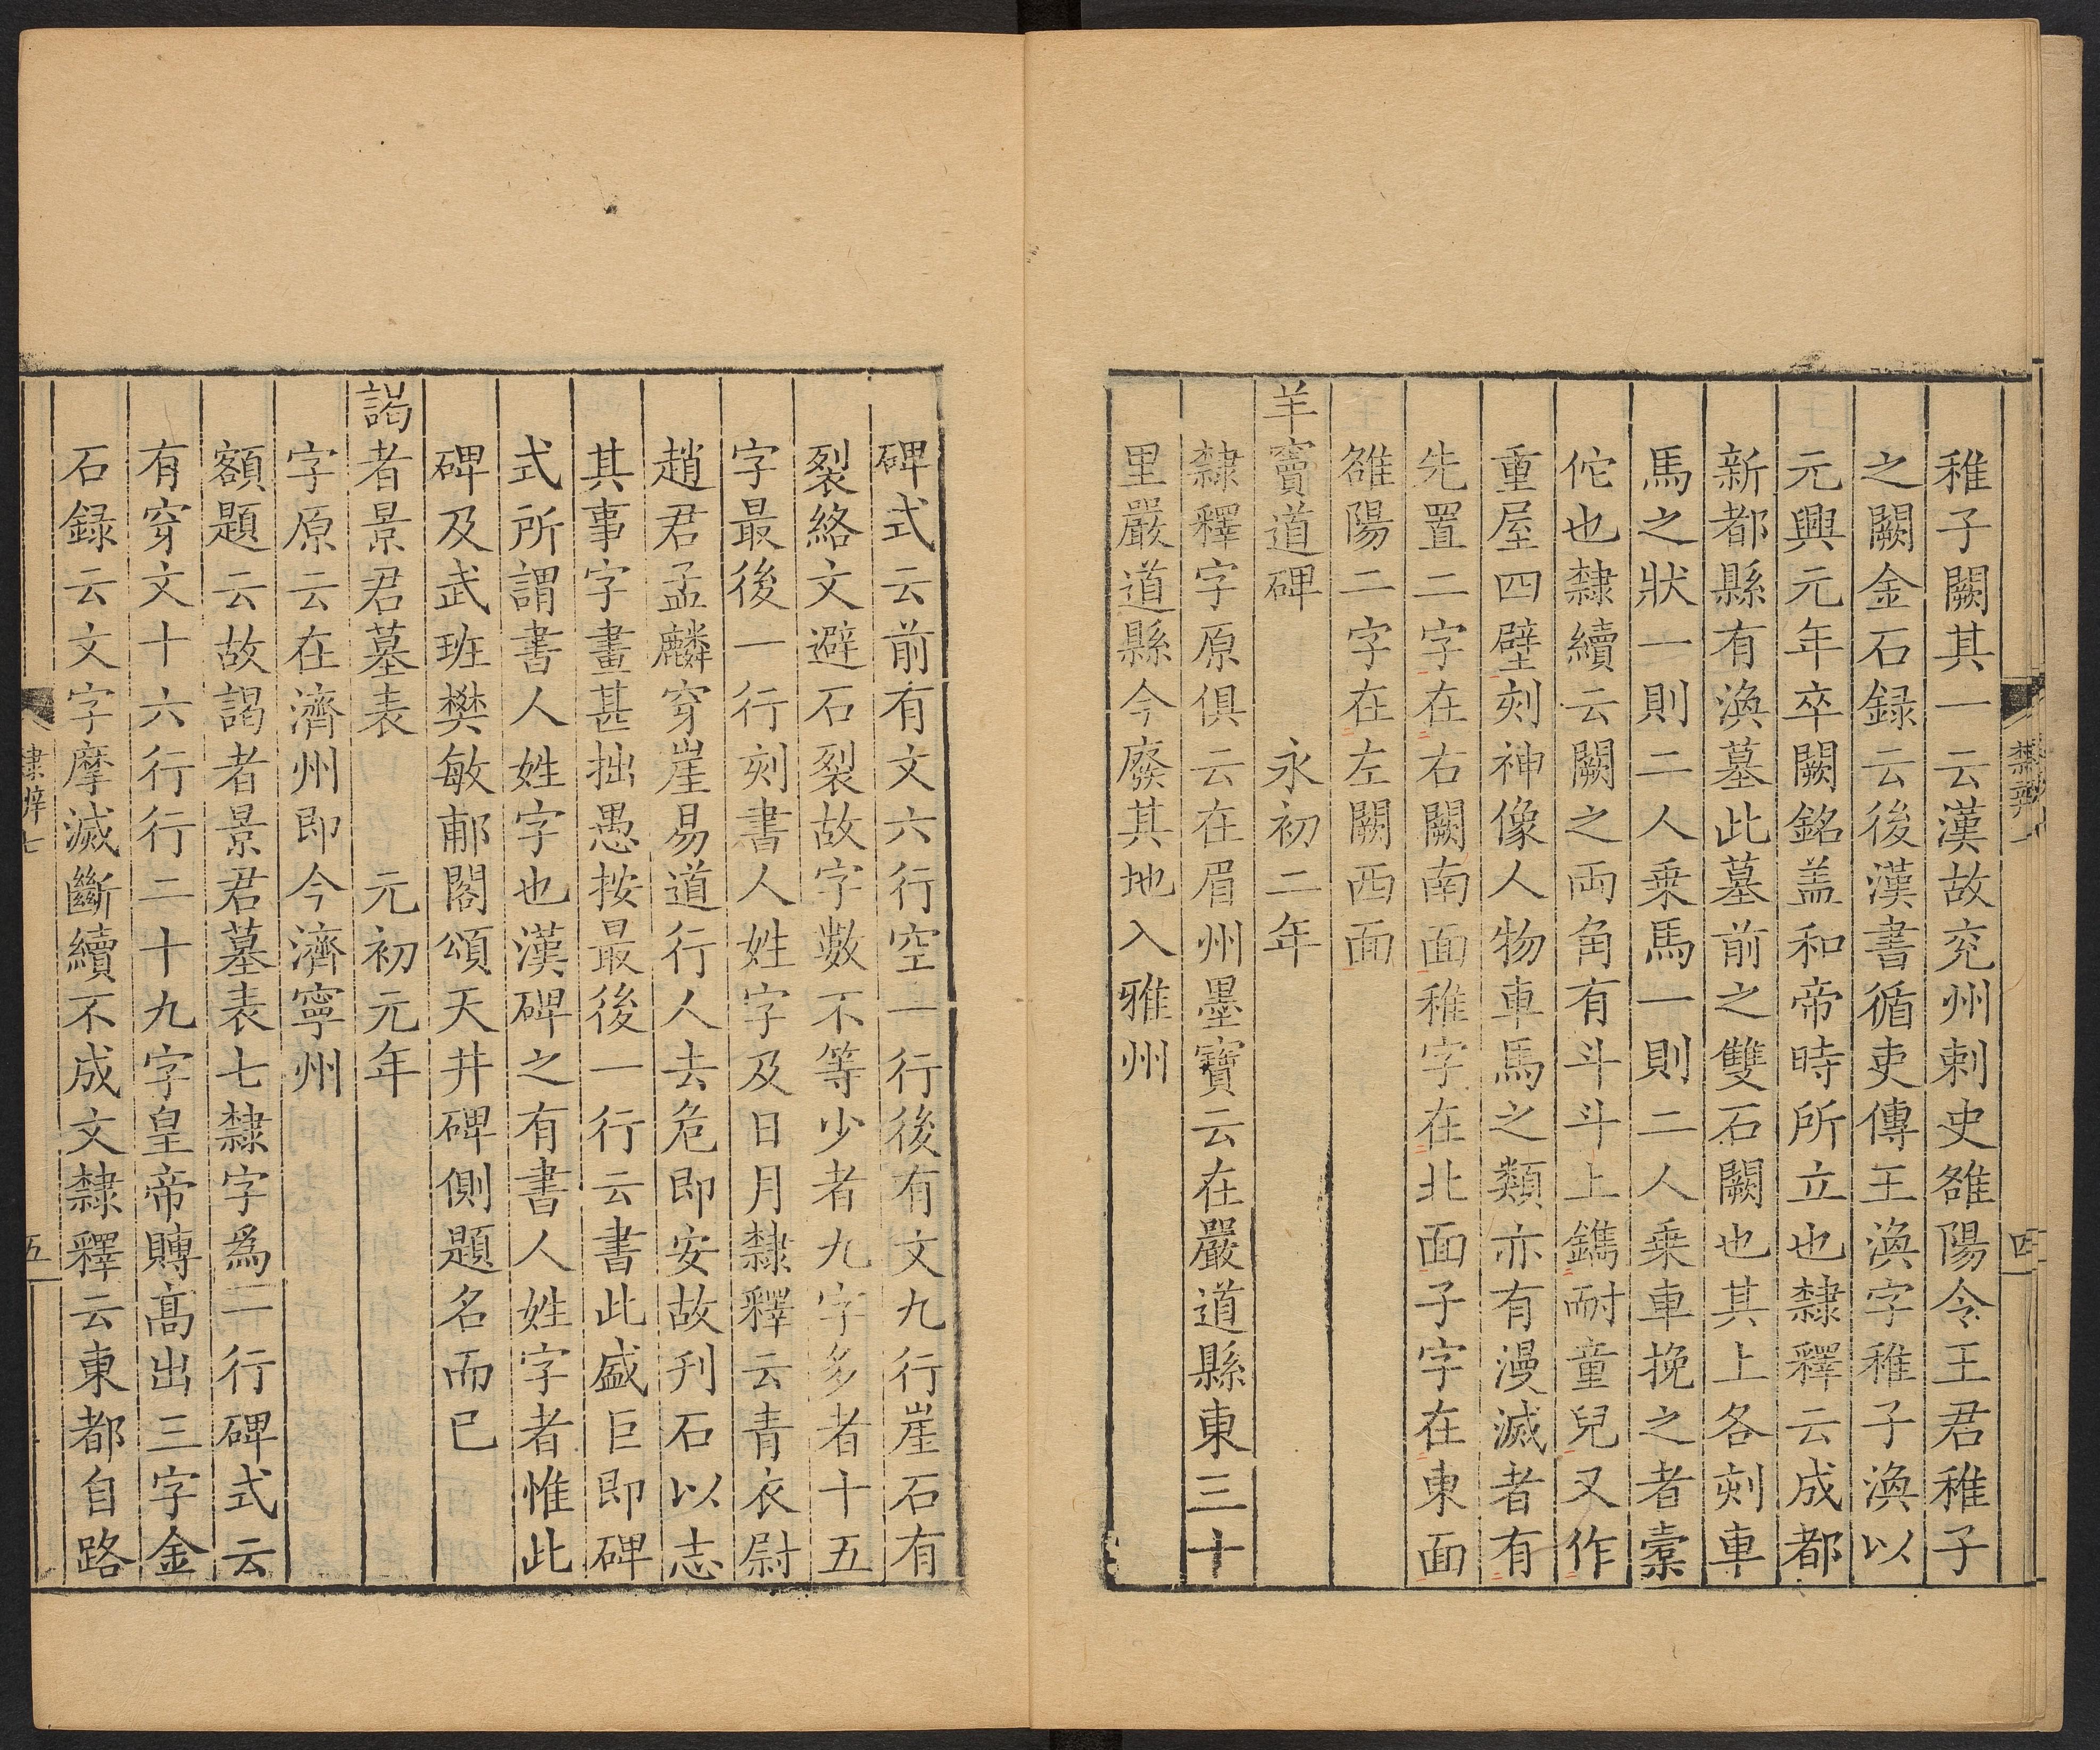 稚子闕其一云漢故兖州刺史雒陽令王君稚子
之闕金石録云後漢書循吏傳王渙字稚子渙以
元興元年卒闕銘盖和帝時所立也隸釋云成都
新都縣有渙墓此墓前之雙石闕也其上各刻車
馬之狀一則二人乗馬一則二人乗車挽之者橐
佗也隸續云闕之両角有斗斗上鐫耐童兒又作
重屋四壁刻神像人物車馬之類亦有漫滅者有
先置二字在右闕南面稚字在北面子字在東面
雒陽二字在左闕西面
羊竇道碑 永初二年
隸釋字原俱云在眉州墨寶云在嚴道縣東三十
里嚴道縣今廢其地入雅州
碑式云前有文六行空一行後有文九行崖石有
裂絡文避石裂故字數不等少者九字多者十五
字最後一行刻書人姓字及日月隸釋云青衣尉
趙君孟麟穿崖易道行人去危即安故刋石以志
其事字畫甚拙愚按最後一行云書此盛巨即碑
式所謂書人姓字也漢碑之有書人姓字者惟此
碑及武班樊敏郙閣頌天井碑側題名而已
謁者景君墓表 元初元年
字原云在濟州即今濟寧州
額題云故謁者景君墓表七隸字爲二行碑式云
有穿文十六行行二十九字皇帝賻高出三字金
石録云文字摩滅斷續不成文隸釋云東都自路
隸辨七
五
四